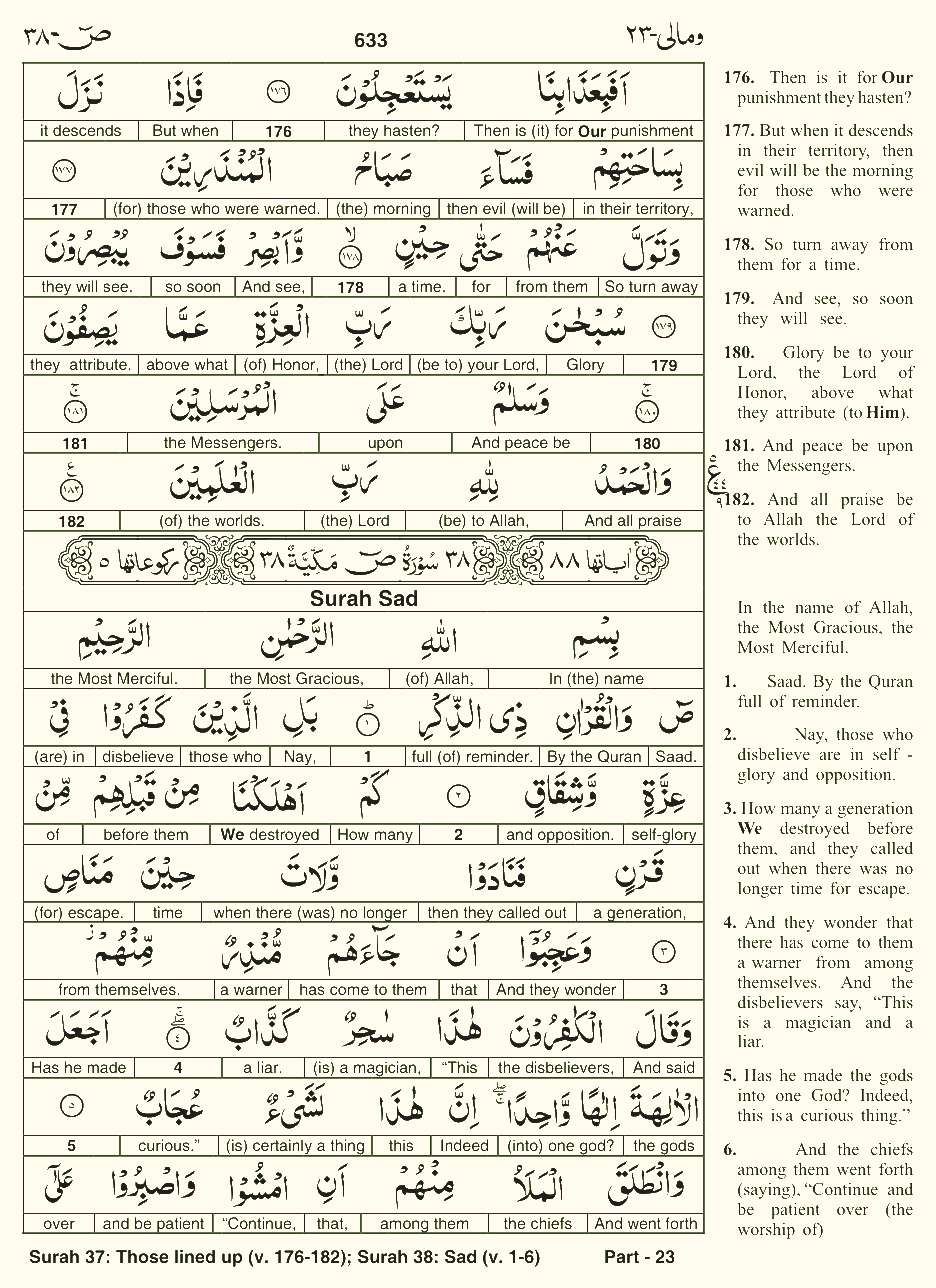 صٓ-٣٨ 633 ومالى-٢٣
اَفَبِعَذَابِنَا يَسْتَعْجِلُوْنَ ١٧٦ فَاِذَا نَزَلَ
it descends But when 176 they hasten? Then is (it) for Our punishment
بِسَاحَتِهِمْ فَسَآءَ صَبَاحُ الْمُنْذَرِيْنَ ١٧٧
177 (for) those who were warned. (the) morning then evil (will be) in their territory,
وَتَوَلَّ عَنْهُمْ حَتّٰى حِيْنٍ ١٧٨ۙ وَّاَبْصِرْ فَسَوْفَ يُبْصِرُوْنَ
they will see. so soon And see, 178 a time. for from them So turn away
١٧٩ سُبْحٰنَ رَبِّكَ رَبِّ الْعِزَّةِ عَمَّا يَصِفُوْنَ
they attribute. above what (of) Honor, (the) Lord (be to) your Lord, Glory 179
١٨٠ۚ وَسَلٰمٌ عَلَى الْمُرْسَلِيْنَ ١٨١ۚ
181 the Messengers. upon And peace be 180
وَالْحَمْدُ لِلّٰهِ رَبِّ الْعٰلَمِيْنَ ١٨٢ ع
182 (of) the worlds. (the) Lord (be) to Allah, And all praise
اٰيَاتُهَا ٨٨ ٣٨ سُوْرَةُ صٓ مَكِّيَّةٌ ٣٨ رُكُوْعَاتُهَا ٥
Surah Sad
بِسْمِ اللّٰهِ الرَّحْمٰنِ الرَّحِيْمِ
the Most Merciful. the Most Gracious, (of) Allah, In (the) name
صٓ وَالْقُرْاٰنِ ذِى الذِّكْرِ ١ؕ بَلِ الَّذِيْنَ كَفَرُوْا فِىْ
(are) in disbelieve those who Nay, 1 full (of) reminder. By the Quran Saad.
عِزَّةٍ وَّشِقَاقٍ ٢ كَمْ اَهْلَكْنَا مِنْ قَبْلِهِمْ مِّنْ
of before them We destroyed How many 2 and opposition. self-glory
قَرْنٍ فَنَادَوْا وَّلَاتَ حِيْنَ مَنَاصٍ
(for) escape. time when there (was) no longer then they called out a generation,
٣ وَعَجِبُوْٓا اَنْ جَآءَهُمْ مُّنْذِرٌ مِّنْهُمْ ز
from themselves. a warner has come to them that And they wonder 3
وَقَالَ الْكٰفِرُوْنَ هٰذَا سٰحِرٌ كَذَّابٌ ٤ اَجَعَلَ
Has he made 4 a liar. (is) a magician, “This the disbelievers, And said
الْاٰلِهَةَ اِلٰهًا وَّاحِدًا اِنَّ هٰذَا لَشَىْءٌ عُجَابٌ ٥
5 curious.” (is) certainly a thing this Indeed (into) one god? the gods
وَانْطَلَقَ الْمَلَاُ مِنْهُمْ اَنِ امْشُوْا وَاصْبِرُوْا عَلٰٓى
over and be patient “Continue, that, among them the chiefs And went forth
176. Then is it for Our
punishment they hasten?
177. But when it descends
in their territory, then
evil will be the morning
for those who were
warned.
178. So turn away from
them for a time.
179. And see, so soon
they will see.
180. Glory be to your
Lord, the Lord of
Honor, above what
they attribute (to Him).
181. And peace be upon
the Messengers.
182. And all praise be
to Allah the Lord of
the worlds.
In the name of Allah,
the Most Gracious, the
Most Merciful.
1. Saad. By the Quran
full of reminder.
2. Nay, those who
disbelieve are in self -
glory and opposition.
3. How many a generation
We destroyed before
them, and they called
out when there was no
longer time for escape.
4. And they wonder that
there has come to them
a warner from among
themselves. And the
disbelievers say, “This
is a magician and a
liar.
5. Has he made the gods
into one God? Indeed,
this is a curious thing.”
6. And the chiefs
among them went forth
(saying), “Continue and
be patient over (the
worship of)
Surah 37: Those lined up (v. 176-182); Surah 38: Sad (v. 1-6) Part - 23